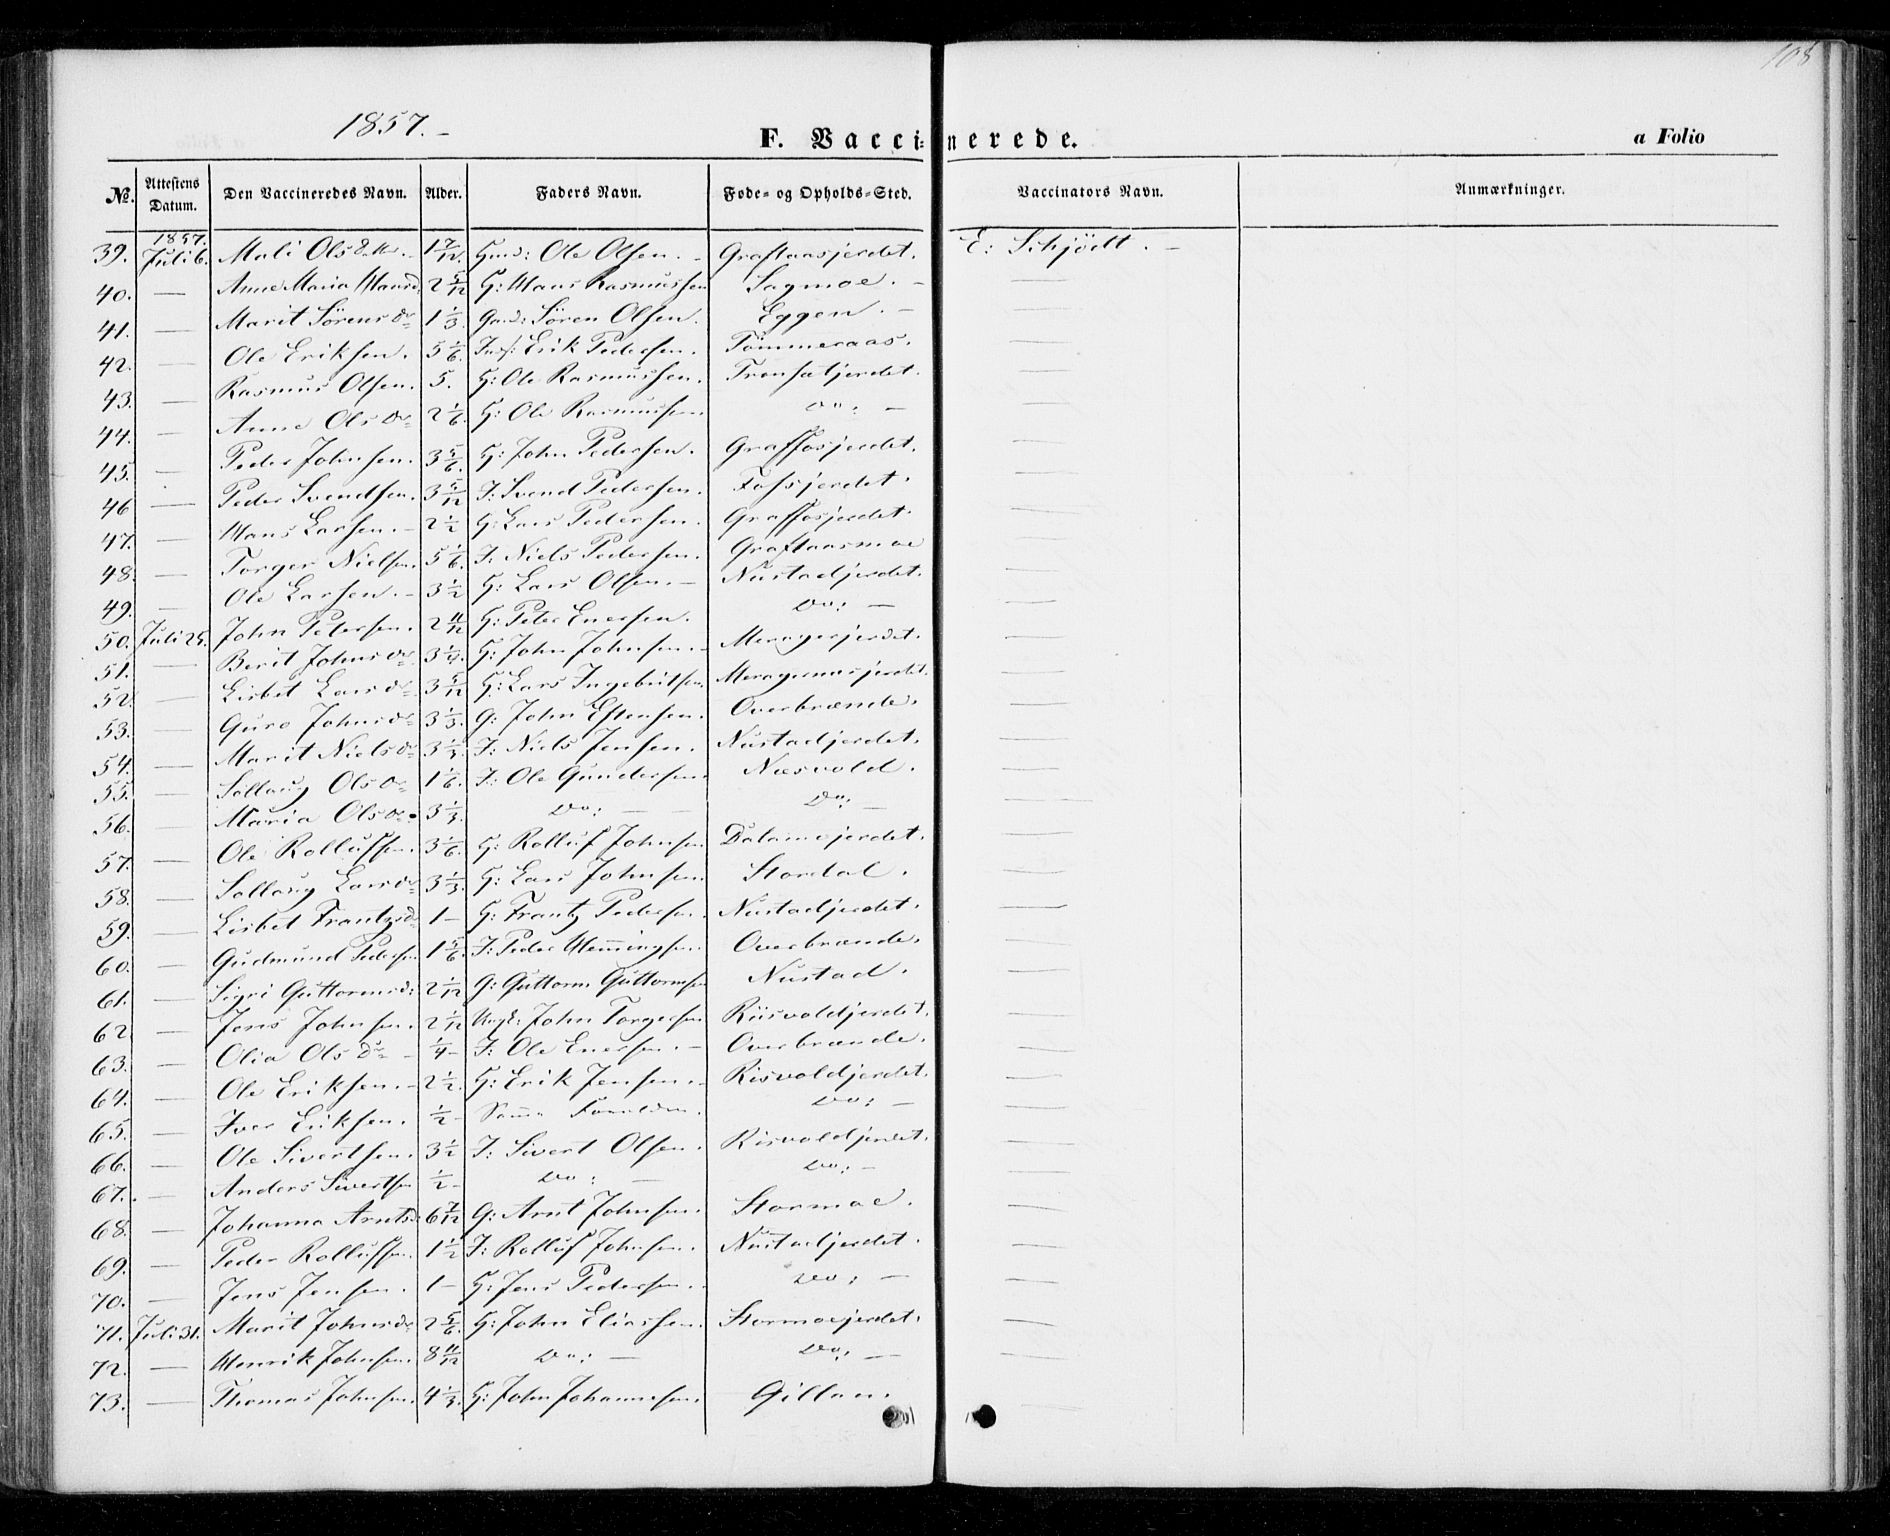 108
1857. –
F. Vaccinerede.
a Folio
No. Attestens Datum. Den Vaccineredes Navn. Alder. Faders Navn. Føde- og Opholds-Sted. Vaccinators Navn. Anmærkninger.
1857.
39. Juli 6. Mali Olsdtr. 1 7/12. Gmd: Ole Olsen. – Graftaasjerdet. E: Schjödt. –
40. — Anne Maria Hansd. 2 5/12 H: Hans Rasmussen Sagmoe. – —
41. — Marit Sörensdr 1 1/3. Gmd: Sören Olsen. Eggen. – —
42. — Ole Eriksen. 5 1/6. Inds: Erik Pedersen. Tömmeraas. —
43. — Rasmus Olsen. 5. H: Ole Rasmussen. Tronsetjerdet. —
44. — Anne Olsdr 2 1/6. H: Ole Rasmussen. Do: – —
45. — Peder Johnsen. 3 5/6. H: John Pedersen. Graffosjerdet. —
46 — Peder Svendsen. 3 5/12 I: Svend Pedersen. Fossjerdet. —
47. — Hans Larsen. – 2 1/2 H: Lars Pedersen. Graffosjerdet. —
48. — Torger Nielsen. 5 1/6. I: Niels Pedersen. Graftaasmoe —
49. — Ole Larsen. – 3 1/2 H: Lars Olsen. – Nustadjerdet. —
50. Juli 25. John Petersen. 2 11/12 H: Peter Enersen. Do: – —
51. — Berit Johnsdr 3 1/4. H: John Johnsen. – Meragerjerdet. —
52. — Lisbet Larsdr 3 5/12 H: Lars Ingebritsen. Meragernasjerdet. —
53. — Guro Johnsdr 3 1/3. G: John Estensen. Overbrænde. —
54. — Marit Nielsdr 3 1/3. I: Niels Jensen. Nustadjerdet. —
55. — Sollaug Olsdr 1 1/6. I: Ole Gundersen. Næsvold. —
56. — Maria Olsdr. 3 1/3. Do: – Do: – —
57. — Ole Rolluffsen. 3 1/6. H: Rolluf Johnsen Dalamojerdet. —
58. — Sollaug Larsdr 3 1/3. H: Lars Johnsen Stordal. —
59. — Lisbet Frantzd. 1 – H: Frantz Pedersen. Nustadjerdet. —
60. — Gudmund Pedersen 1 5/6. I: Peder Hemingsen. Overbrænde. —
61. — Sigri Guttormsd: 2 1/12 G: Guttorm Guttormsen Nustad. —
62 — Jens Johnsen. 2 1/12 Ungk: John Torgersen Riisvoldjerdet. —
63. — Olia Olsdr – 1/4 – I: Ole Enersen. – Overbrænde. —
64. — Ole Eriksen. – 2 1/2. H: Erik Jensen. – Risvoldjerdet. —
65. — Iver Eriksen. 1/2 – Samme Forældre. Do: – —
66. — Ole Sivertsen. 3 1/2 I: Sivert Olsen. Risvoldjerdet. —
67. — Anders Sivertsen 1/2 – Do: – Do: – —
68. — Johanna Arntsd: 6 7/12 G: Arnt Johnsen. Stormoe. —
69. — Peder Rolluffsen. 1 1/2 I: Rolluf Johnsen. Nustadjerdet. —
70. — Jens Jensen. 1 – H: Jens Pedersen. Do: – —
71. Juli 31. Marit Johnsdr 2 5/6. H: John Eliassen. Stormoejerdet. —
72. — Henrik Johnsen. 8 11/12 Do: – Do: – —
73. — Thomas Johnsen. 4 1/3. H: John Johannesen. Gillan. —